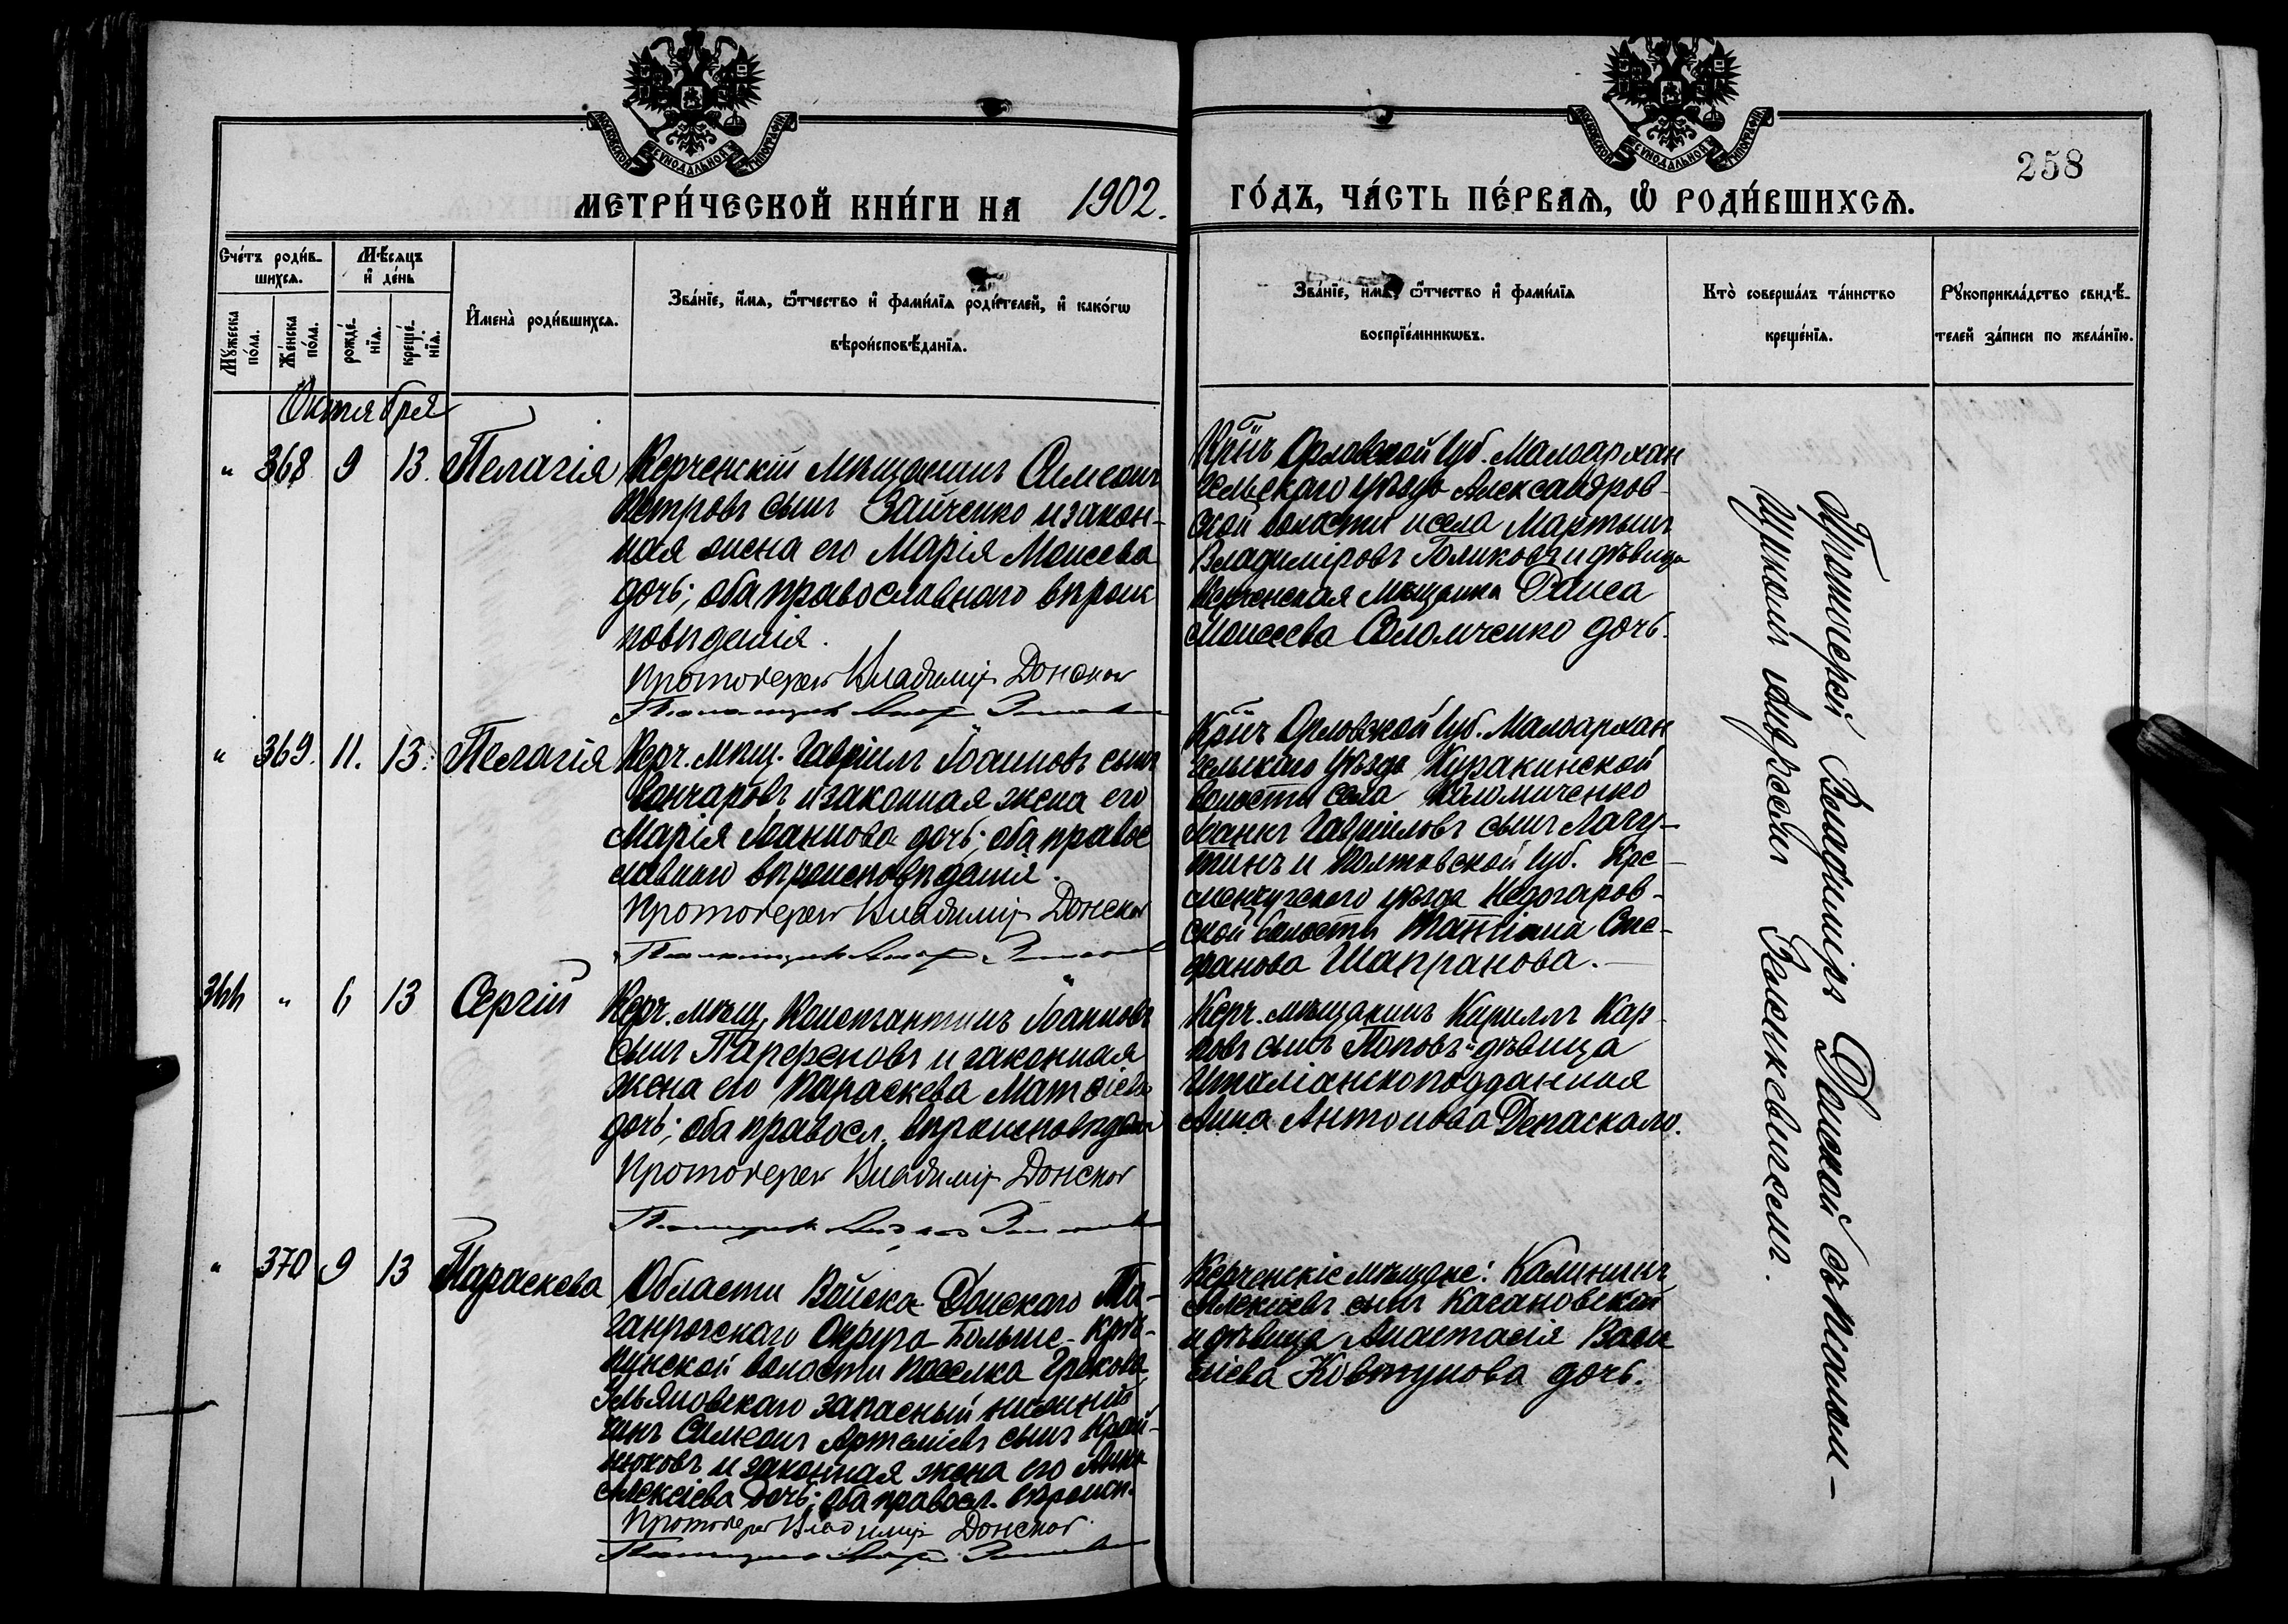 МОСКОВСКОЙ СѴНОДАЛЬНОЙ ТИПОГРАФІИ
МОСКОВСКОЙ СѴНОДАЛЬНОЙ ТИПОГРАФІИ
258
МЕТРИ́ЧЕСКОЙ КНИ́ГИ НА 1902.
ГО́ДЪ, ЧА́СТЬ ПЕ́РВАѦ, Ѽ РОДИ́ВШИХСѦ.
Сче́тъ роди́в-
шихсѧ.
Мѣ́сѧцъ
и҆ де́нь
Мꙋ́жеска
по́ла.
Же́нска
по́ла.
рожде́-
нїѧ.
креще́-
нїѧ.
И҆мена̀ роди́вшихсѧ.
Зва́нїе, и҆́мѧ, ѻ҆́тчество и҆ фами́лїѧ роди́телей, и҆ како́гѡ
вѣроисповѣ́данїѧ.
Зва́нїе, и҆́мѧ, ѻ҆́тчество и҆ фами́лїѧ
воспрїе́мникѡвъ.
Кто̀ соверша́лъ та́инство
креще́нїѧ.
Рꙋкоприкла́дство свидѣ́-
телей за́писи по жела́нїю.
Октября
" 368 9 13. Пелагія
Керченскій Мѣщанинъ Симеонъ
Петровъ сынъ Зайченко и закон-
ная жена его Марія Моисеева
дочь; оба православнаго вѣроис
повѣданія.
Протоіерей Владиміръ Донской
Крнъ Орловской Губ. Малоархан
гельскаго уѣзда Александров-
ской волости и села Мартынъ
Владиміровъ Голиковъ и дѣвица
Керченская Мѣщанка Раиса
Моисеева Соломченко дочь.
" 369. 11. 13. Пелагія
Керч. мѣщ. Гавріилъ Іоанновъ сынъ
Гончаровъ и законная жена его
Марія Іоаннова дочь; оба правос
лавнаго вѣроисповѣданія.
Протоіерей Владиміръ Донской
Крнъ Орловской Губ. Малоархан
гельскаго Уѣзда Куракинской
волости села Коломиченко
Іоаннъ Гавріиловъ сынъ Лагу-
тинъ и Полтавской Губ. Кре-
менчугскаго уѣзда Недогаров-
ской волости Татіана Сте-
фанова Шапранова.
366 " 6 13 Сергій
Керч. мѣщ. Константинъ Іоанновъ
сынъ Парфеновъ и законная
жена его Параскева Матѳіева
дочь; оба правосл. вѣроисповѣдан
Протоіерей Владиміръ Донской
Керч. мѣщанинъ Кириллъ Кар-
повъ сынъ Поповъ и дѣвица
Италіанскоподданная
Анна Антонова Депаскало.
" 370 9 13 Параскева
Области Войска Донскаго Та-
ганрогскаго Округа Больше-Крѣ-
пинской волости поселка Греково-
Ульяновскаго запасный нижній
чинъ Симеонъ Артеміевъ сынъ Край-
нюковъ и законная жена его Анна
Алексіева дочь; оба правосл. вѣроисп.
Протоіерей Владиміръ Донской
Керченскіе мѣщане: Калининъ
Алексіевъ сынъ Касановскій
и дѣвица Анастасія Васи
ліева Ковтунова дочь.
Протоіерей Владиміръ Донской съ псалом-
щикомъ Андреемъ